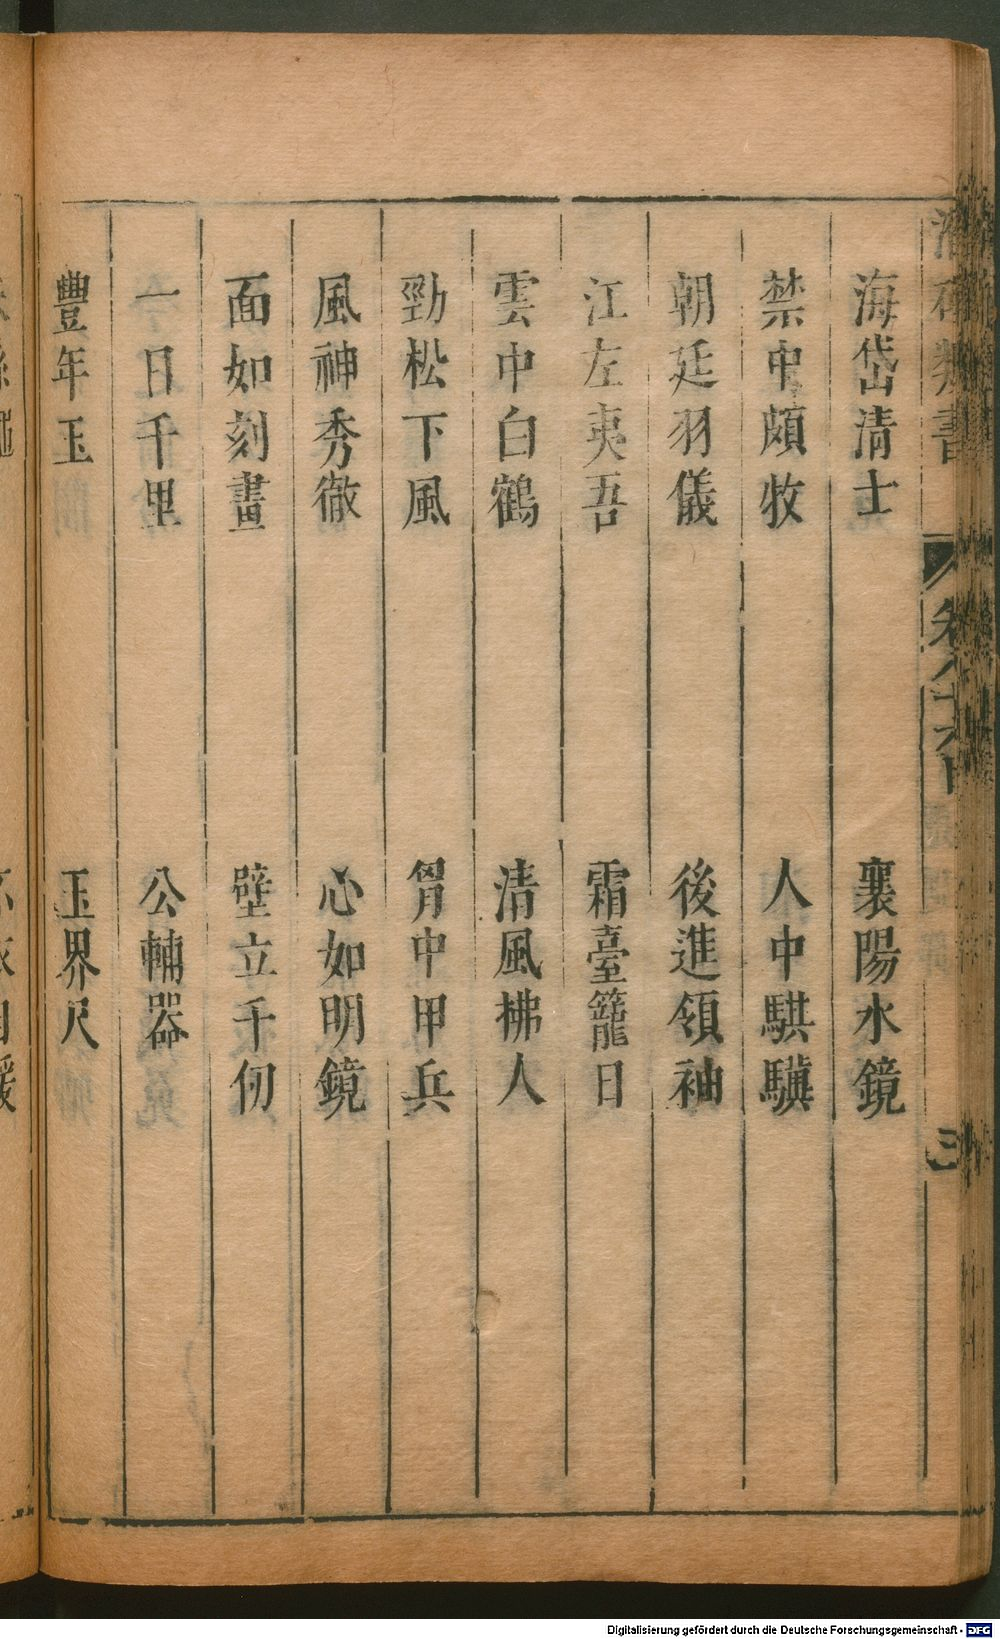 海岱清士　襄陽水鏡
禁中頗牧　人中騏驥
朝廷羽儀　後進領袖
江左夷吾　霜臺籠日
雲中白鶴　清風拂人
勁松下風　胷中甲兵
風神秀徹　心如明鏡
面如刻畫　壁立千仞
一日千里　公輔器
豐年玉　玉界尺
類書
卷八十六
三
Digitalisierung gefördert durch die Deutsche Forschungsgemeinschaft - DFG